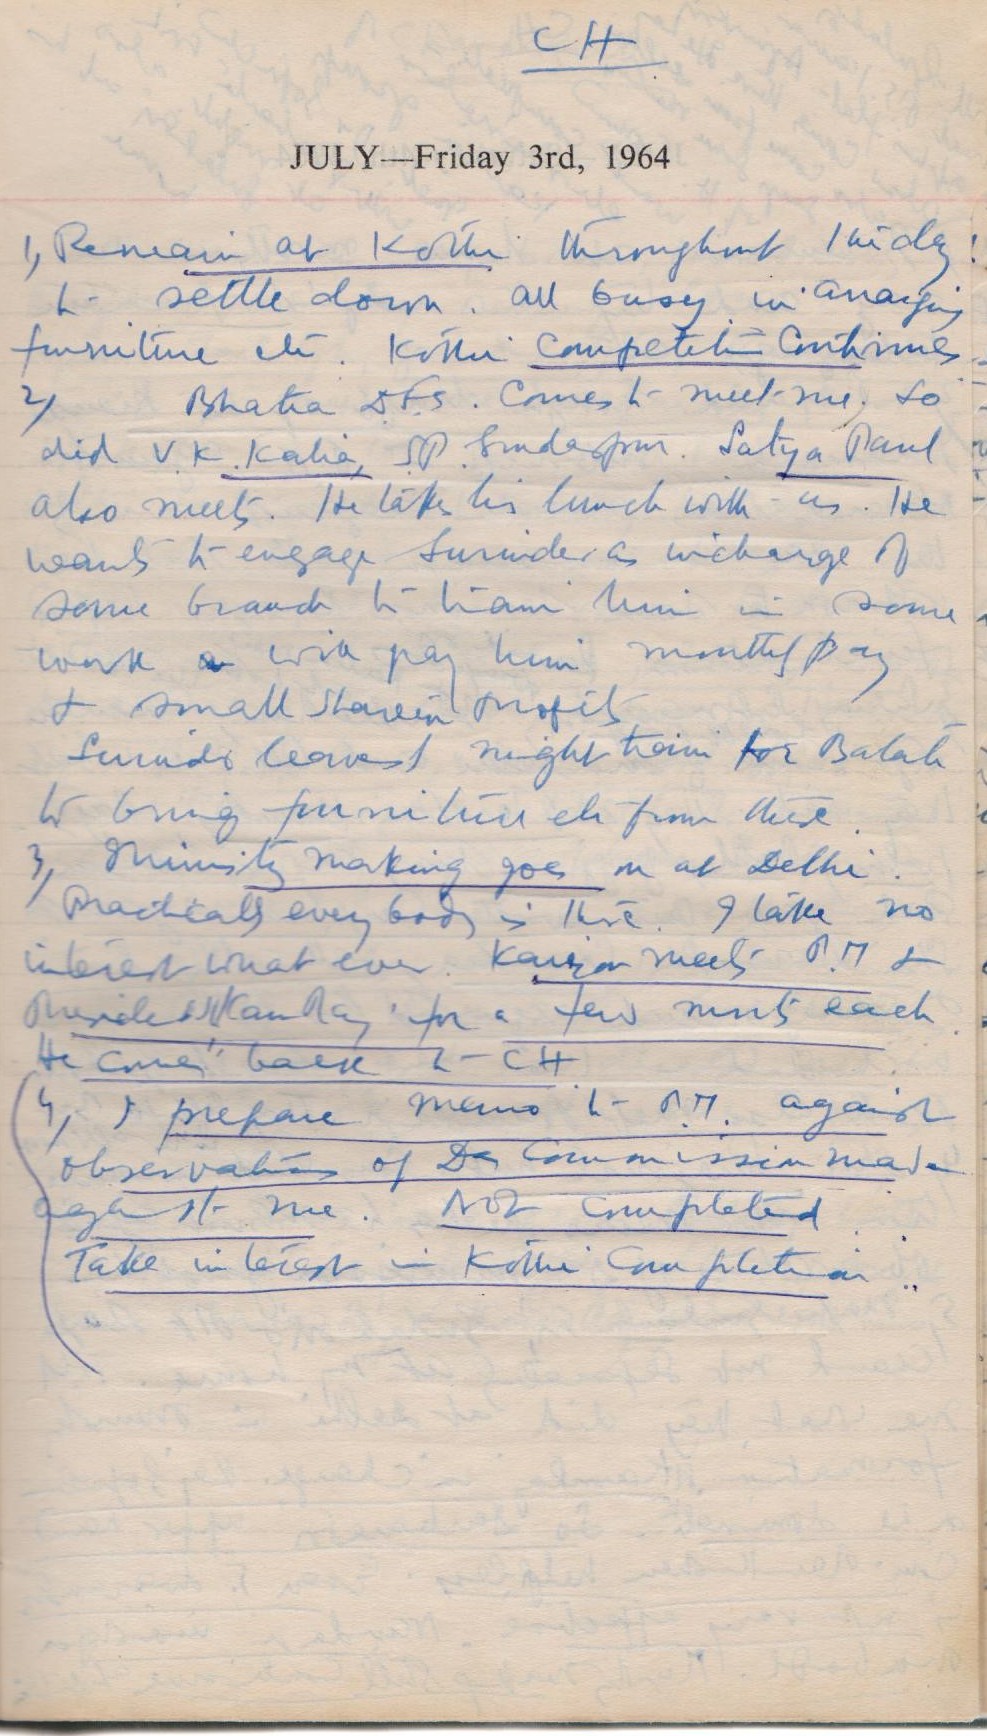 CH
JULY—Friday 3rd, 1964
1, Remain at Kothi throughout the day
to settle down. All busy in arranging
furniture etc. Kothi Competetion Continues
2, Bhatia DFS. Comes to meet me. So
did V.K. Kalia, SP. Satya Paul
also meets. He takes his lunch with us. He
wants to engage Surinder as incharge of
some branch to train him in some
work & will pay him monthly pay
& small share in profits
Surinder leaves night train for Batala
to bring furniture etc from there.
3, Ministry making goes on at Delhi.
Practically every body is there. I take no
interest what ever. Kairon meets P.M &
President Kamraj for a few mnts each.
He comes back to CH
4, I prepare memo to P.M. against
observations of Das Commission made
against me. Not completed.
Take interest in Kothi Completion ..